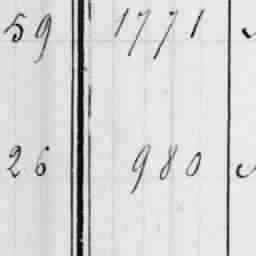 59 1771
26 980